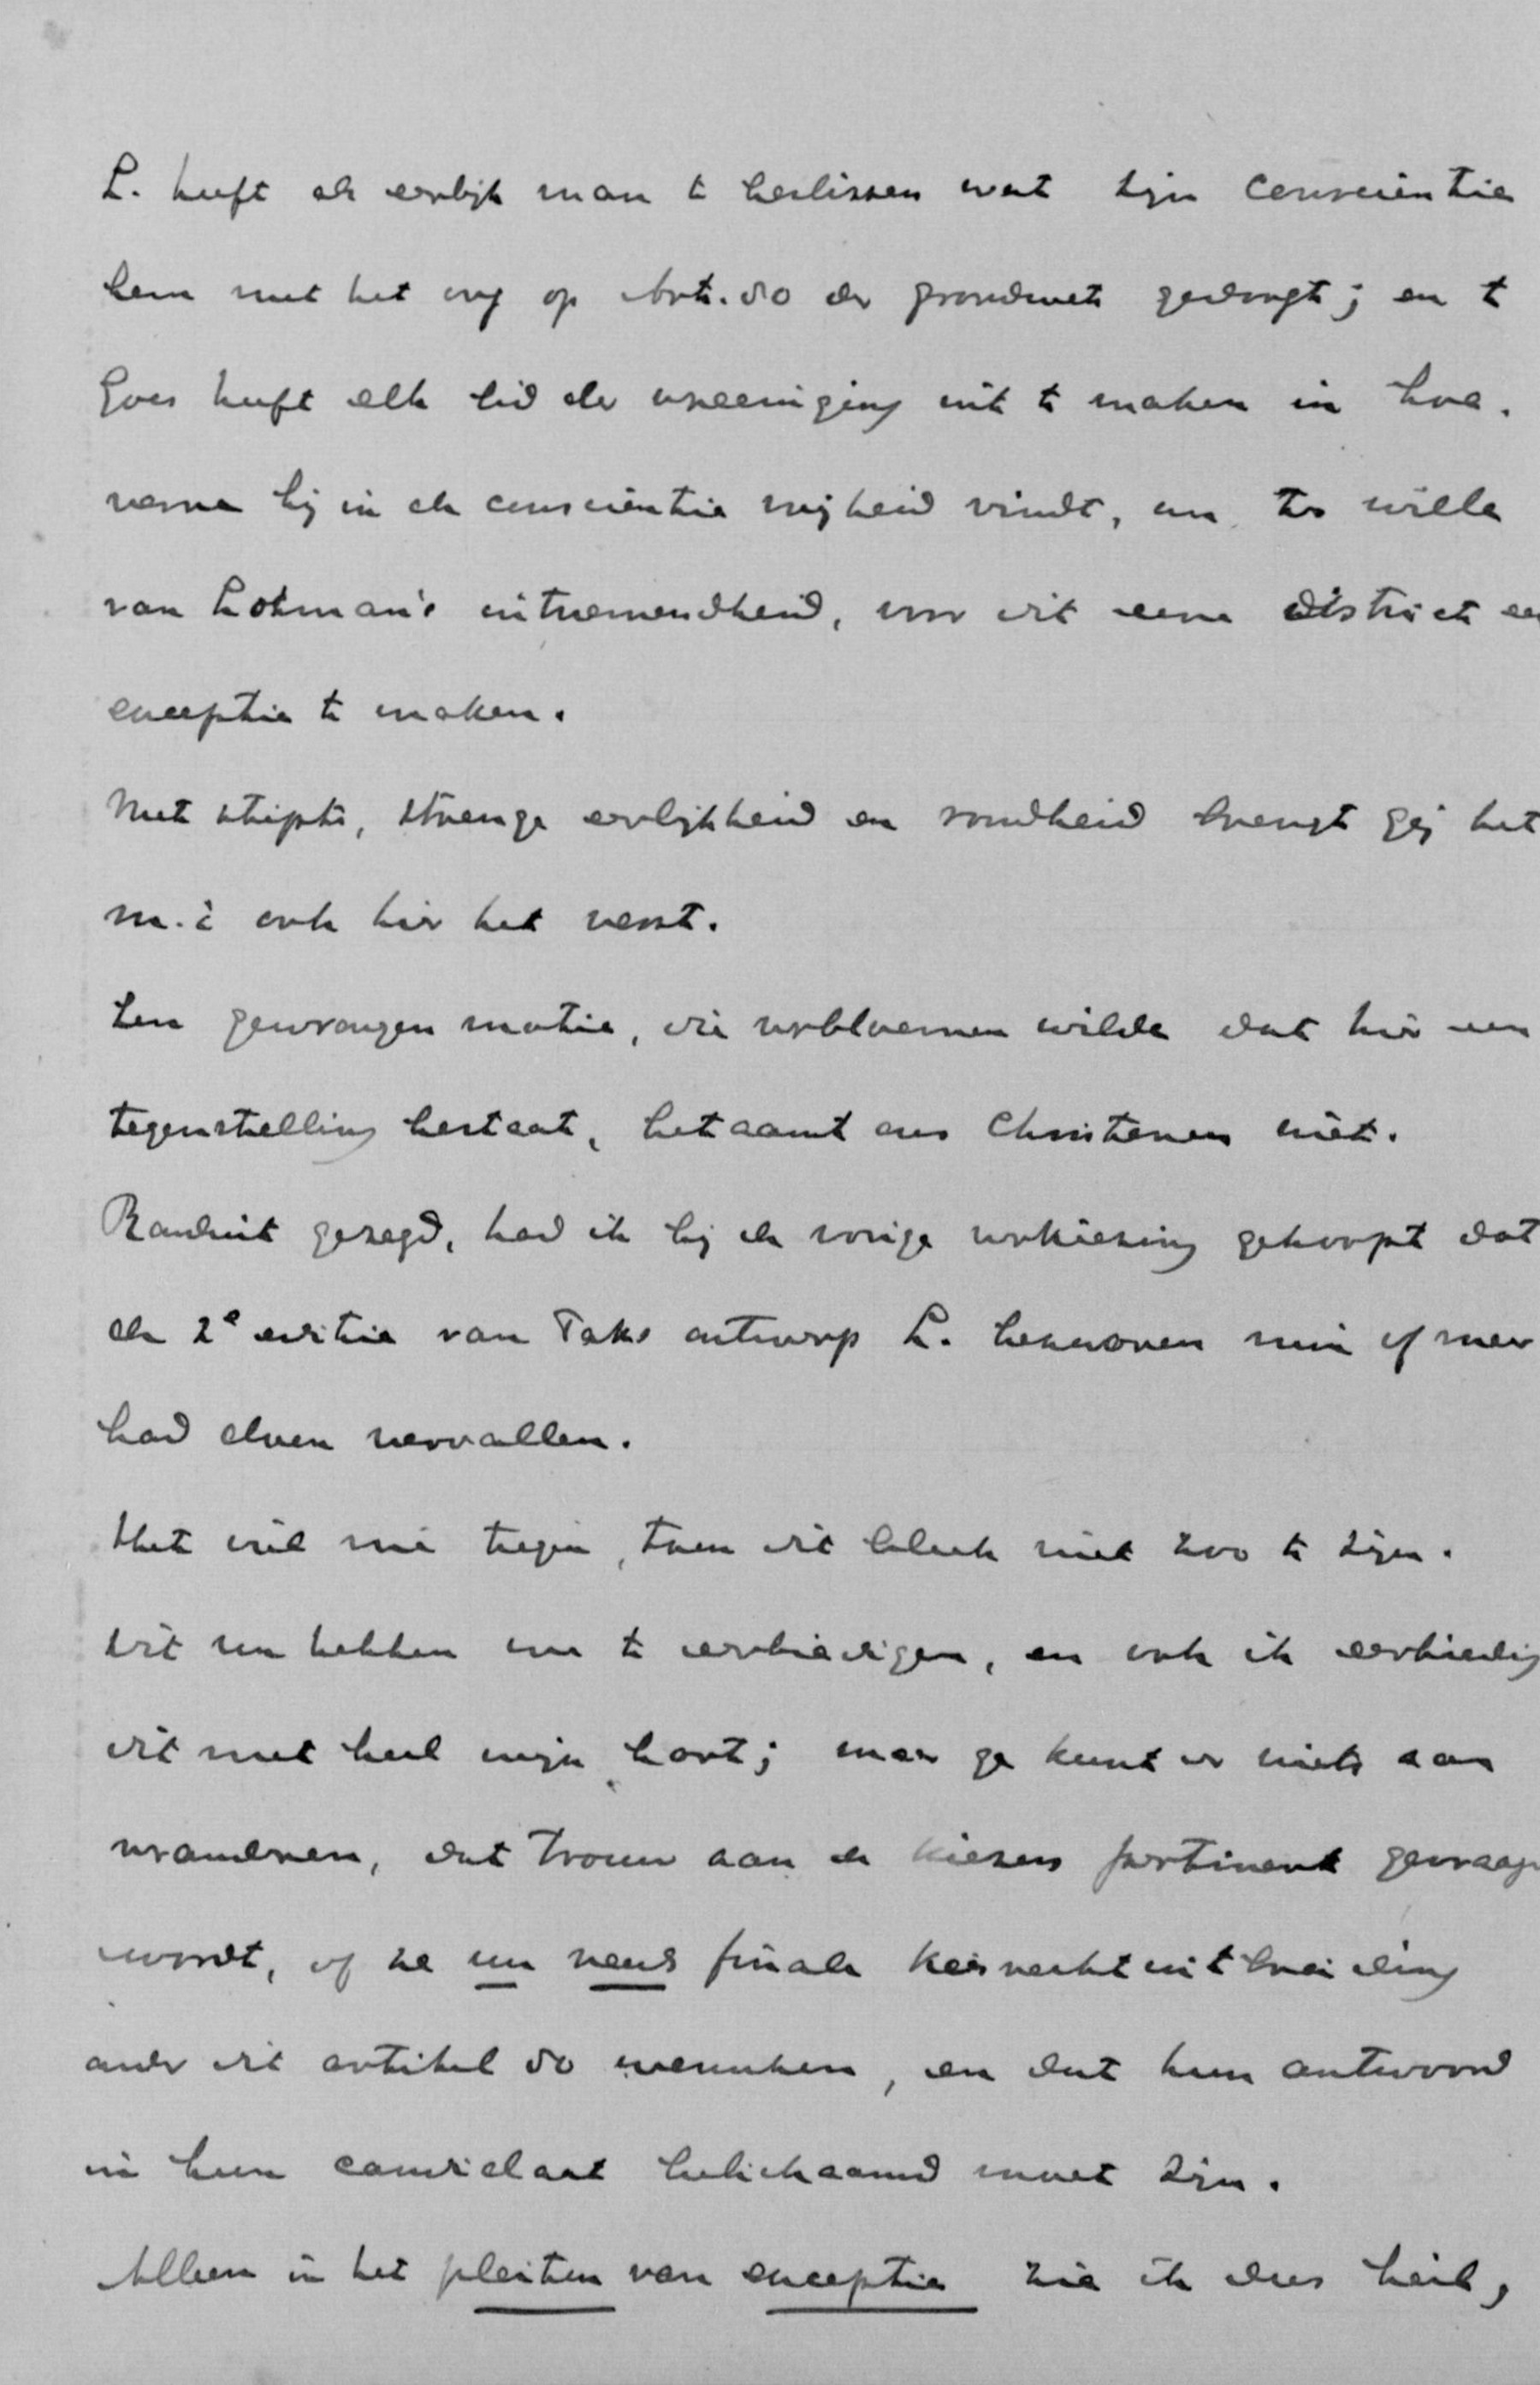 L. heeft als eerlijk man te beslissen wat zijn conscientie
hem met het oog op Art. 80 der grondwet gedoogt; en te
Goes heeft elk lid der vereeniging uit te maken in hoe-
verre hij in de conscientie vrijheid vindt, om ter wille
van Lohman's uitnemendheid, voor dit eene district een
exceptie te maken.
Met stipte, strenge eerlijkheid en rondheid brengt gij het
m.i. ook hier het verst.
Een gewrongen motie, die verbloemen wilde dat hier een
tegenstelling bestaat, betaamt ons Christenen niet.
Ronduit gezegd, had ik bij de vorige verkiezing gehoopt dat
de 2e editie van Taks ontwerp L. bezwaren min of meer
had doen vervallen.
Het viel mij tegen, toen dit bleek niet zoo te zijn.
Dit nu hebben we te eerbiedigen, en ook ik eerbiedig
dit met heel mijn hart; maar ge kunt er niets aan
veranderen, dat trouw aan de kiezers pertinent gevraagd
wordt, of ze nu reeds finale kiesrechtuitbreiding
onder dit artikel 80 wenschen, en dat hun antwoord
in hun candidaat belichaamd moet zijn.
Alleen in het pleiten van exceptie zie ik dus heil,